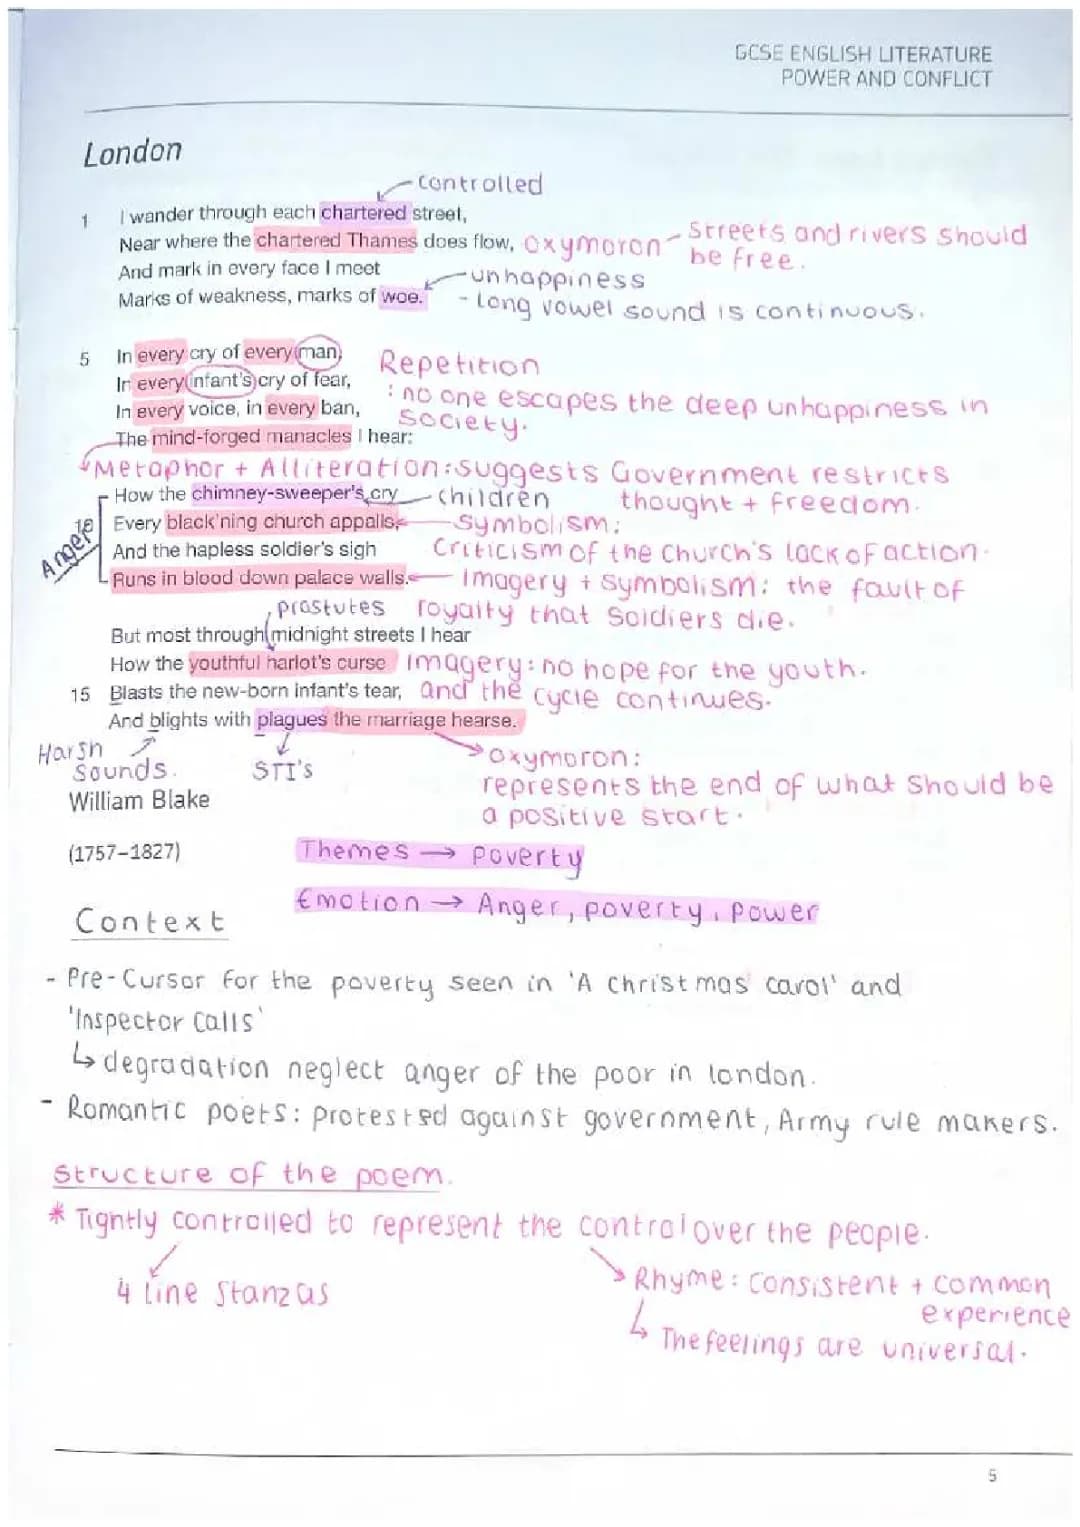 GCSE ENGLISH LITERATURE
POWER AND CONFLICT
London
controlled
1 I wander through each chartered street,
Near where the chartered Thames does flow, oxymoron - Streets and rivers should be free.
And mark in every face I meet
- unhappiness
Marks of weakness, marks of woe. - Long vowel sound is continuous.
5 In every cry of every man,
Repetition
In every infant's cry of fear,
: no one escapes the deep unhappiness in society.
In every voice, in every ban,
The mind-forged manacles I hear:
Metaphor + Alliteration: suggests Government restricts thought + freedom.
How the chimney-sweeper's cry children
10 Every black'ning church appalls, Symbolism:
Anger
And the hapless soldier's sigh Criticism of the church's lack of action.
Runs in blood down palace walls. Imagery + symbolism: the fault of royalty that soldiers die.
prostutes
But most through midnight streets I hear
How the youthful harlot's curse Imagery: no hope for the youth.
15 Blasts the new-born infant's tear, and the cycle continues.
And blights with plagues the marriage hearse.
Harsh Sounds.
STI's
oxymoron:
represents the end of what should be
a positive start.
William Blake
(1757–1827)
Themes → poverty
Emotion → Anger, poverty, power
Context
- Pre-Cursor for the poverty seen in 'A christmas carol' and
'Inspector Calls'
↳ degradation neglect anger of the poor in london.
- Romantic poets: protested against government, Army rule makers.
Structure of the poem.
* Tightly controlled to represent the control over the people.
4 line stanzas
Rhyme: consistent + common experience
↳ The feelings are universal.
5